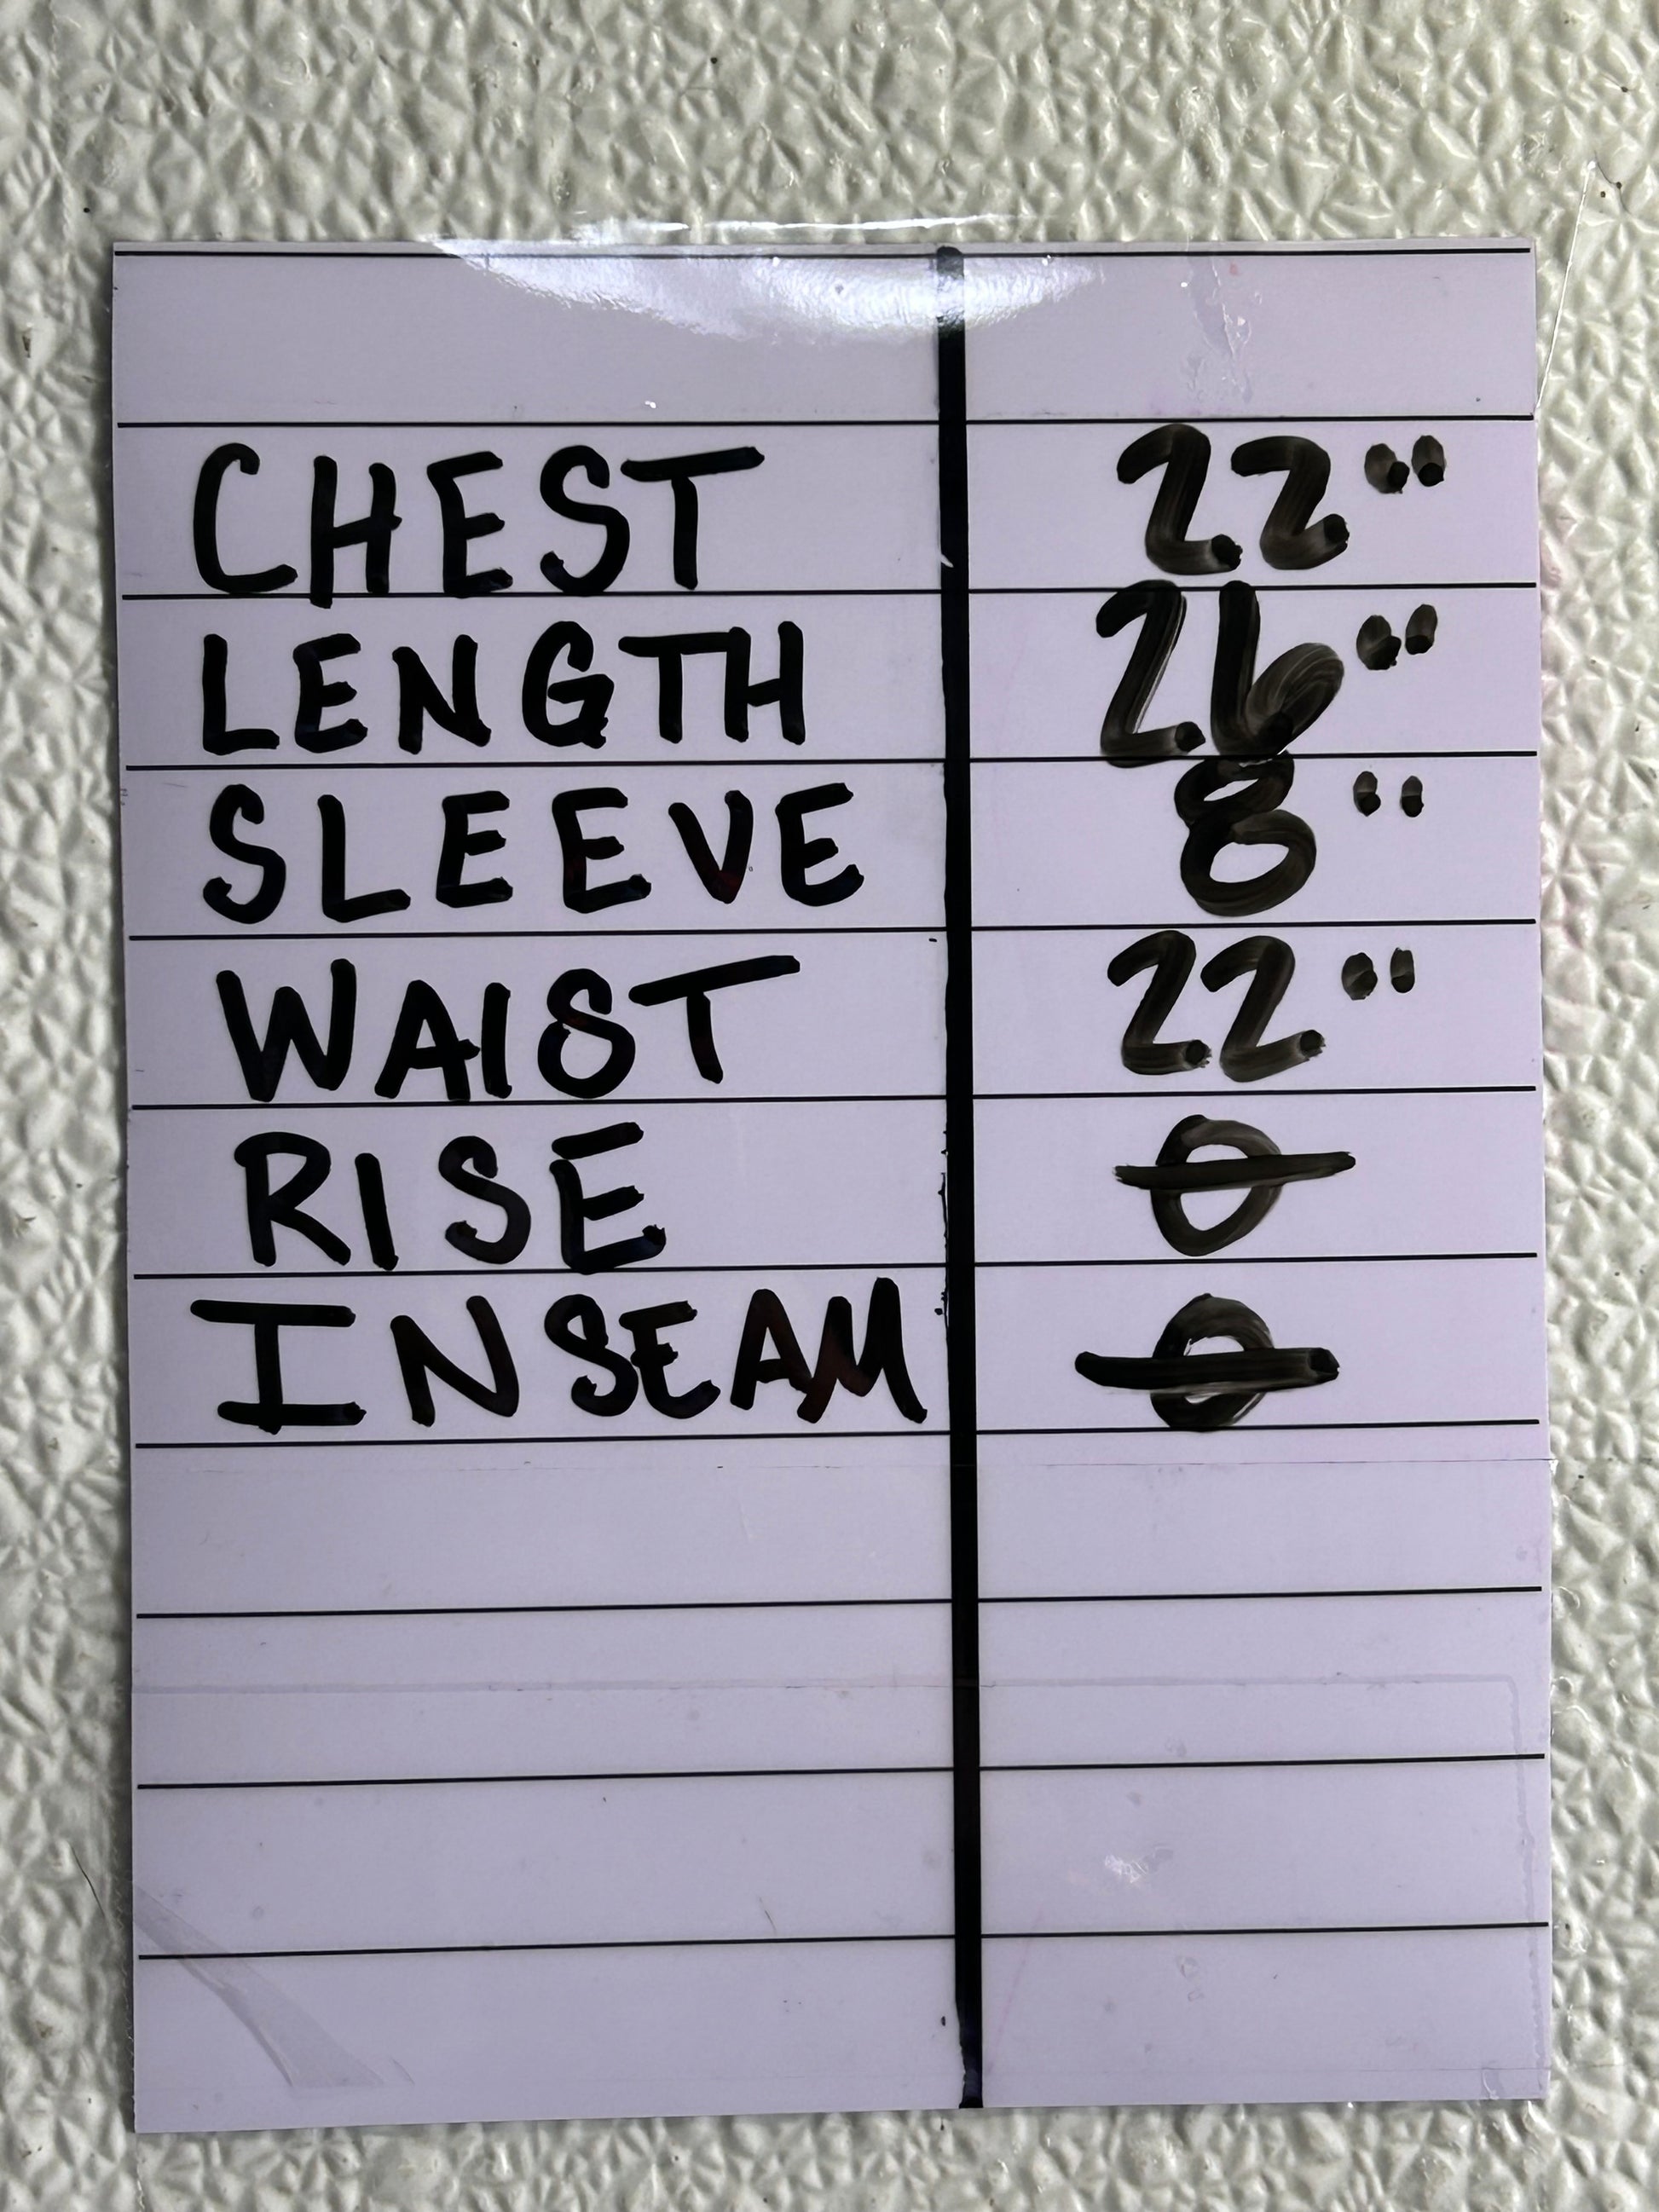 CHEST 22"
LENGTH 26"
SLEEVE 8"
WAIST 22"
RISE 0
INSEAM 0